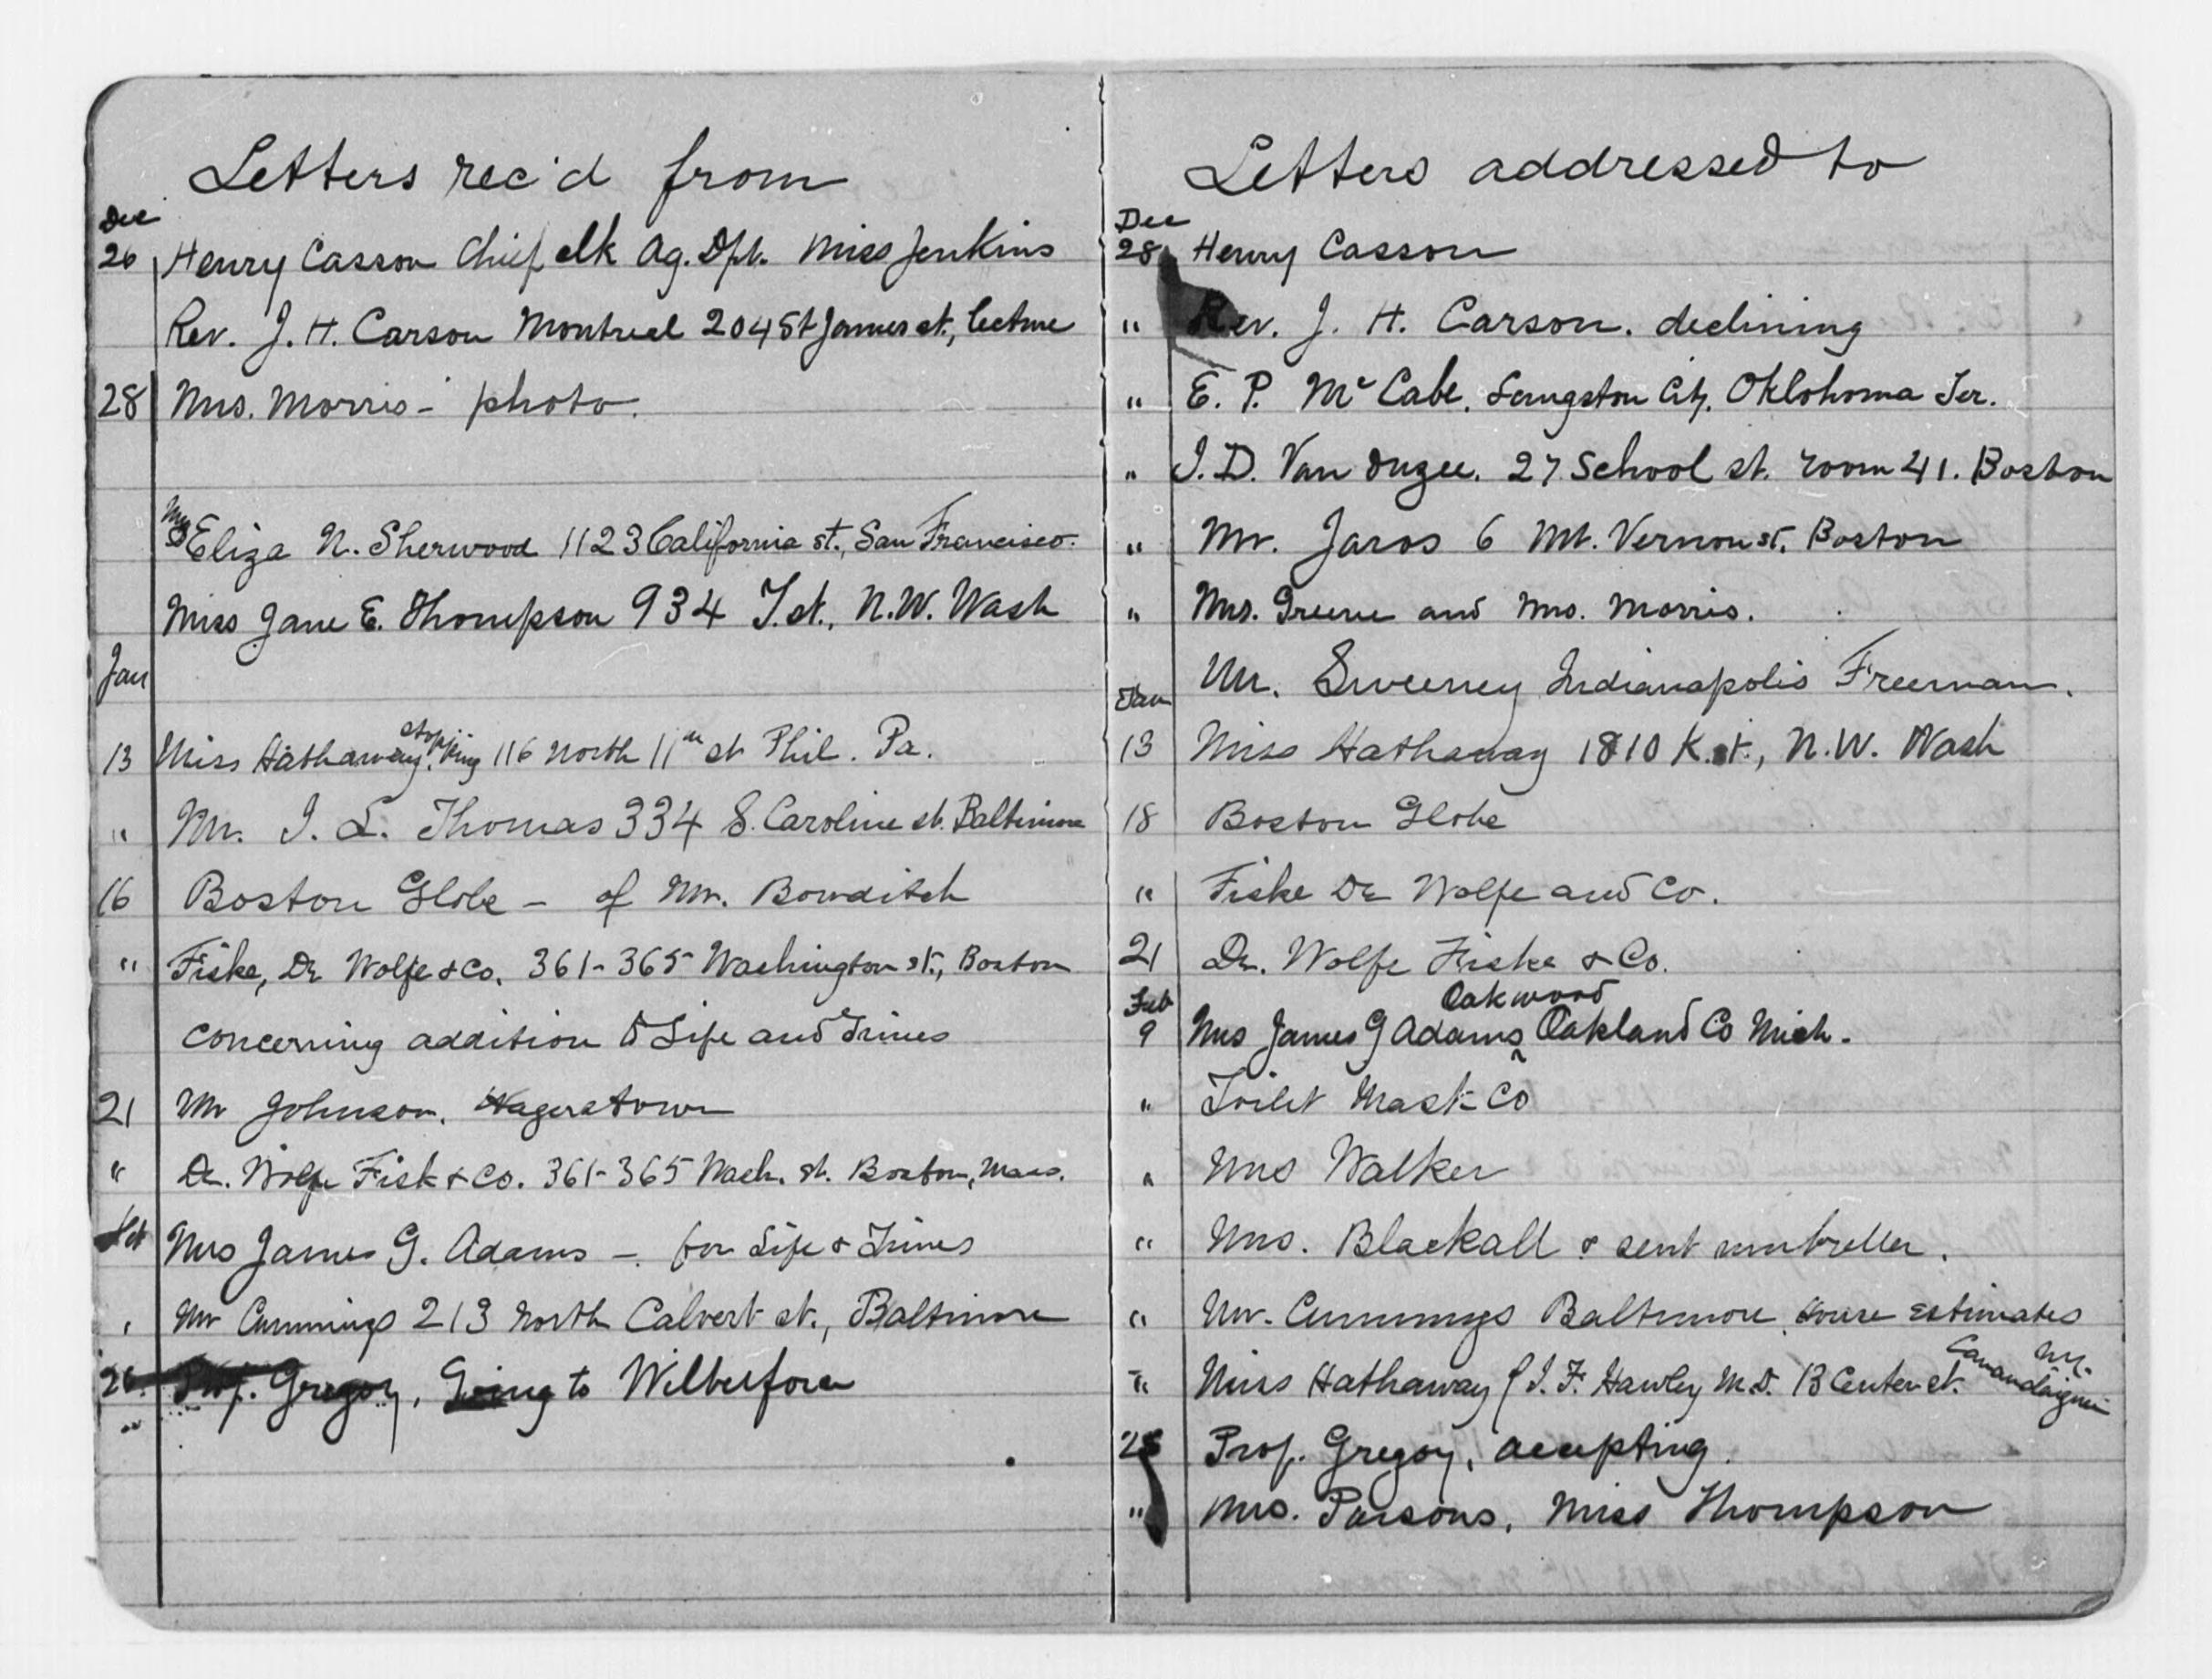 Letters rec'd from
Dec
26 Henry Casson Chief clk Ag. Dpt. Miss Jenkins
Rev. J. H. Carson Montreal 204 St James st., lecture
28 Mrs. Morris - photo.
Mrs Eliza N. Sherwood 1123 California st., San Francisco.
Miss Jane E. Thompson 934 T. st., N.W. Wash
Jan
13 Miss Hathaway, stopping 116 North 11th st Phil. Pa.
" Mr. J. L. Thomas 334 S. Caroline st. Baltimore
16 Boston Globe - of Mr. Bowditch
" Fiske, De Wolfe & Co. 361-365 Washington st., Boston
concerning addition to Life and Times
21 Mr Johnson. Hagerstown
" De. Wolfe Fisk & Co. 361-365 Wash. st. Boston, Mass.
Feb Mrs James G. Adams - for Life & Times
" Mr Cummings 213 North Calvert st., Baltimore
26. Prof. Gregory, Going to Wilberforce
"
Letters addressed to
Dec
28 Henry Casson
" Rev. J. H. Carson. declining
" E. P. McCabe. Langston City, Oklohoma Ter.
" J. D. Van Duzee. 27 School st. room 41. Boston
" Mr. Jaros 6 Mt. Vernon st. Boston
" Mrs. Greene and Mrs. Morris.
Mr. Sweeney Indianapolis Freeman.
Jan
13 Miss Hathaway 1810 K. st., N.W. Wash
18 Boston Globe
" Fiske De Wolfe and Co.
21 De. Wolfe Fiske & Co.
Feb Oakwood
9 Mrs James G Adams ^ Oakland Co Mich.
" Toilet Mask Co
" Mrs Walker
" Mrs. Blackall & sent umbrella.
" Mr. Cummings Baltimore, House Estimates
" Miss Hathaway J. F. Hawley M.D. 13 Center st. Canandaigua N.Y.
28 Prof. Gregory, accepting.
" Mrs. Parsons, Miss Thompson